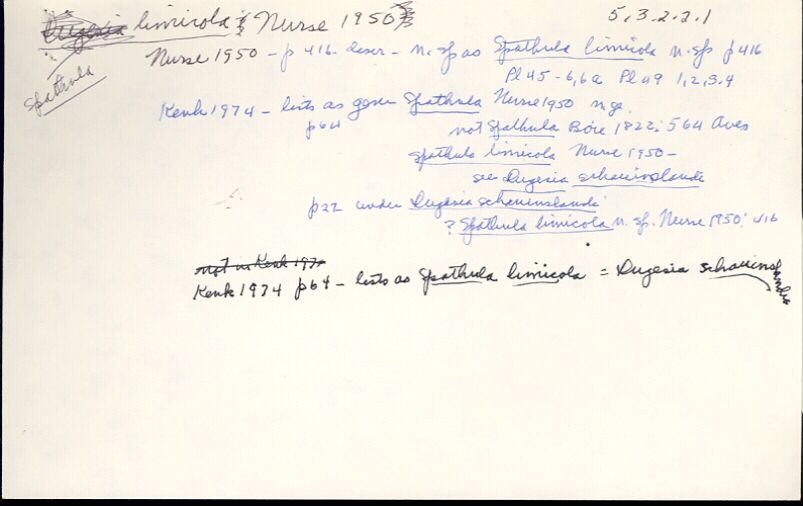 Dugesia limicola Nurse 1950 5.3.2.2.1
Spathula
Nurse 1950 - p 416. descr - n. sp as Spathula limicola n. sp p 416
Pl 45 - 6,6a Pl 49 1,2,3,4
Kenk 1974 - lists as genus Spathula Nurse 1950 n.g.
p64 not Spathula Boie 1822: 564 Aves
Spathula limicola Nurse 1950 -
see Dugesia schauinslandi
p22 under Dugesia schauinslandi
? Spathula limicola n. sp. Nurse 1950: 416
not in Kenk 1974
Kenk 1974 p64 - lists as Spathula limicola = Dugesia schauinslandi